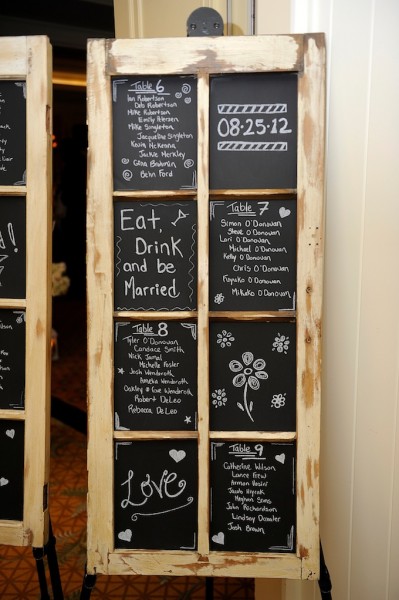 Table 6
Ian Robertson
Cato Robertson
Mike Robertson
Emily Petersen
Mike Singleton
Jacqueline Singleton
Kevin McKenna
Jackie Merkley
Gena
Behn Ford
08·25·12
Eat,
Drink
and be
Married.
Table 7
Simon O'Donovan
Steve O'Donovan
Lori O'Donovan
Michael O'Donovan
Kelly O'Donovan
Chris O'Donovan
Fuyuko O'Donovan
Mikuko O'Donovan
Table 8
Tyler O'Donovan
Candace Smith
Nick Jamal
Michelle Foster
Josh Wendroth
Amelia Wendroth
Oakley & Eve Wendroth
Robert DeLeo
Rebecca DeLeo
Love
Table 9
Catherine Wilson
Lance Ferw
Arman
Jacob
Meghan Sims
John Richardson
Lindsay Dowler
Josh Brown